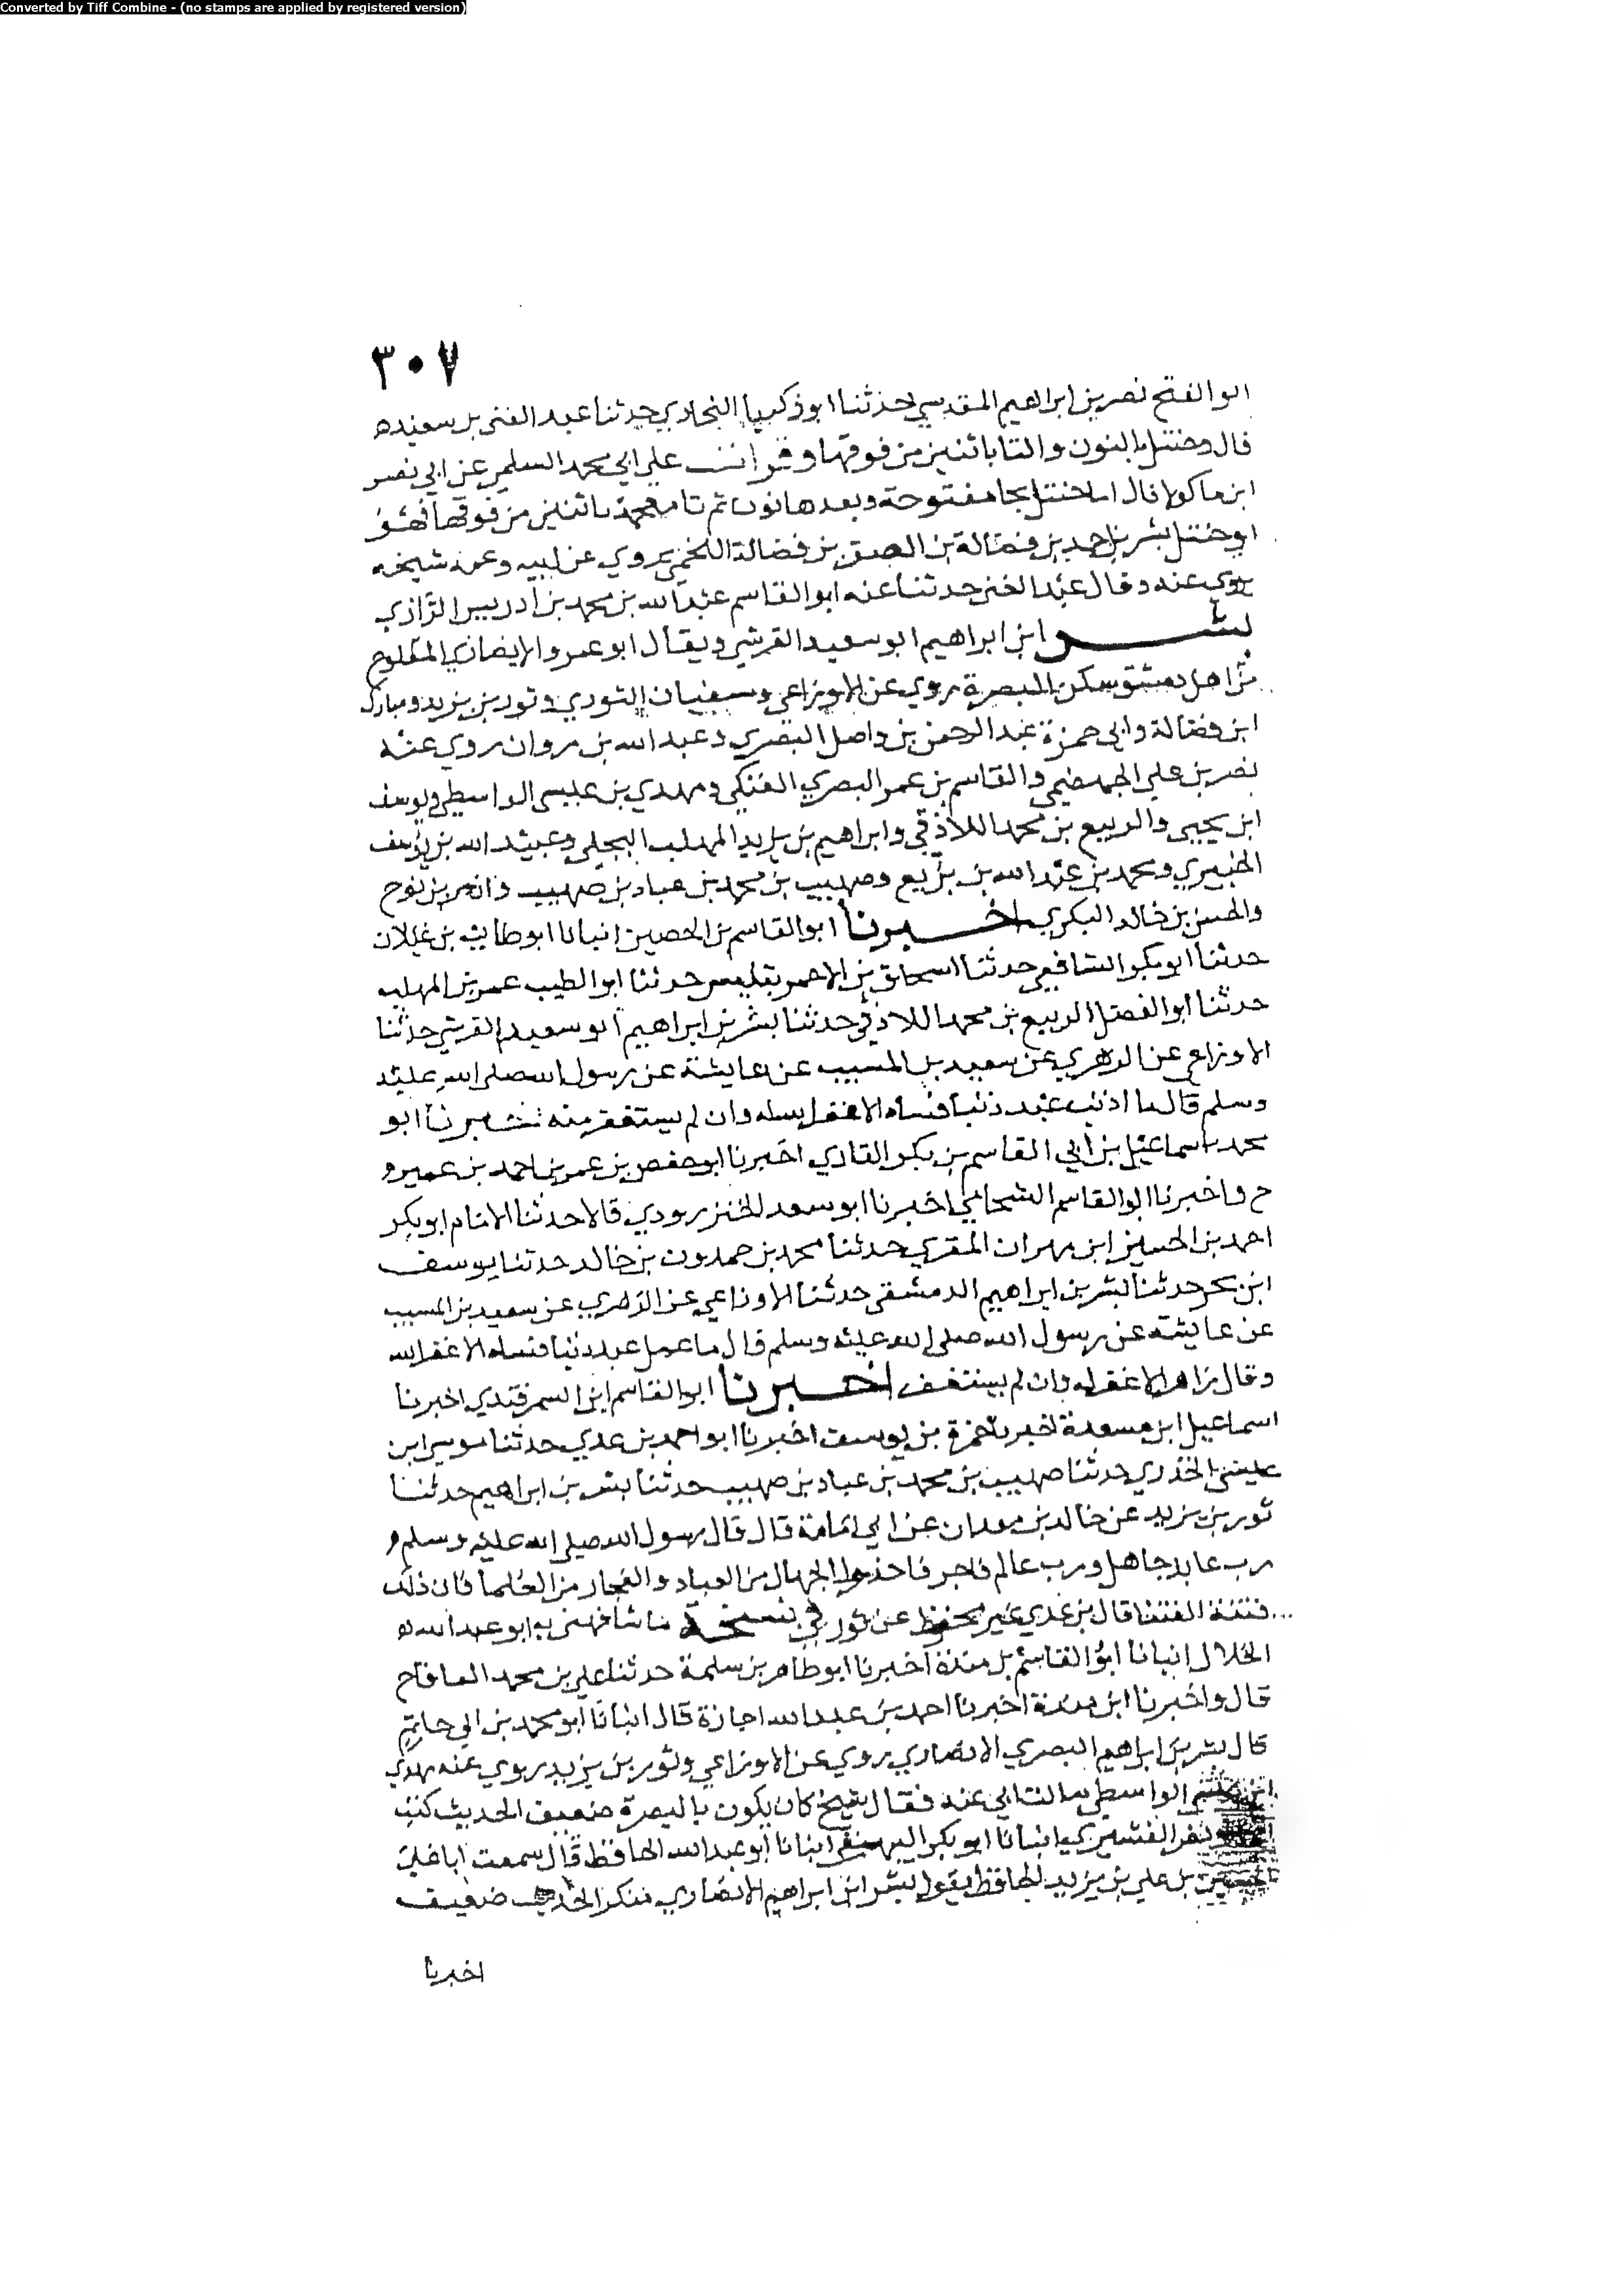 Converted by Tiff Combine - (no stamps are applied by registered version)
٣٠٧
ابو الفتح نصر بن ابراهيم المقدسي حدثنا ابو زكريا البخاري حدثنا عبد الغني بن سعيد ه
قال وخنتل بالنون والتا باثنتين من فوقها وقرات على ابي محمد السلمي عن ابي نصر
ابن ماكولا قال اما خنتل بخا مفتوحة وبعدها نون ثم تا معجمة باثنتين من فوقها فهو
ابو خنتل بشر بن احمد بن فضالة بن الصقر بن فضالة اللخمي يروي عن ابيه وعمه شيخه
يروي عنه وقال عبد الغني حدثنا عنه ابو القاسم عبد الله بن محمد بن ادريس الرازي
بشر ابن ابراهيم ابو سعيد القرشي ويقال ابو عمرو الانصاري المفلوج
من اهل دمشق سكن البصرة روي عن الاوزاعي وسفيان الثوري وثور بن يزيد ومبارك
ابن فضالة وابي حمزة عبد الرحمن بن واصل البصري وعبد الله بن مروان روي عنه
نصر بن علي الجهضمي والقاسم بن عمر البصري العتكي ومهدي بن عيسى الواسطي ويوسف
ابن يحيى والربيع بن محمد اللاذقي وابراهيم بن يزيد المهلب البجلي وعبيد الله بن يوسف
الجبيري ومحمد بن عبد الله بن بزيع وصهيب بن محمد بن عباد بن صهيب وازهر بن نوح
والحسن بن خالد البكري اخبرنا ابو القاسم بن الحصين انبانا ابو طالب بن غيلان
حدثنا ابو بكر الشافعي حدثنا اسحاق بن الاحمر بتفليس حدثنا ابو الطيب عمر بن المهلب
حدثنا ابو الفضل الربيع بن محمد اللاذقي حدثنا بشر بن ابراهيم ابو سعيد القرشي حدثنا
الاوزاعي عن الزهري عن سعيد بن المسيب عن عايشة عن رسول الله صلى الله عليه
وسلم قال ما اذنب عبد ذنبا فساه الا غفر له وان لم يستغفر منه اخبرنا ابو
محمد اسماعيل بن ابي القاسم بن بكر القاري اخبرنا ابو حفص بن عمر بن احمد بن عمير و
ح واخبرنا ابو القاسم الشحامي اخبرنا ابو سعد الخنزرودي قالا حدثنا الامام ابو بكر
احمد بن الحسين ابن مهران المقري حدثنا محمد بن حمدون بن خالد حدثنا يوسف
ابن بحر حدثنا بشر بن ابراهيم الدمشقي حدثنا الاوزاعي عن الزهري عن سعيد بن المسيب
عن عايشة عن رسول الله صلى الله عليه وسلم قال ما عمل عبد ذنبا فساه الا غفر الله
وقال زاهر الا غفر له وان لم يستغفر اخبرنا ابو القاسم ابن السمرقندي اخبرنا
اسماعيل ابن مسعدة اخبرنا حمزة بن يوسف اخبرنا ابو احمد بن عدي حدثنا موسى ابن
عيسى الخزري حدثنا صهيب بن محمد بن عباد بن صهيب حدثنا بشر بن ابراهيم حدثنا
ثور بن يزيد عن خالد بن معدان عن ابي امامة قال قال رسول الله صلى الله عليه وسلم و
رب عابد جاهل ورب عالم فاجر فاحذروا الجهال من العباد والفجار من العلما فان ذلك
فتنة الفتنا قال بن عدي غير محفوظ عن ثور في نسخة ما شافهني به ابو عبد الله ه
الخلال انبانا ابو القاسم بن مندة اخبرنا ابو طاهر بن سلمة حدثنا علي بن محمد الفافاح
قال واخبرنا ابن مندة اخبرنا احمد بن عبد الله اجازة قال انبانا ابو محمد بن ابي حاتم
قال بشر بن ابراهيم البصري الانصاري روي عن الاوزاعي وثور بن يزيد روي عنه مهدي
ابن عيسى الواسطي سالت ابي عنه فقال شيخ كان يكون بالبصرة ضعيف الحديث كتب
نصر القشيري انبانا ابو بكر البيهقي انبانا ابو عبد الله الحافظ قال سمعت ابا علي
الحسين بن علي بن يزيد الحافظ يقول بشر ابن ابراهيم الانصاري منكر الحديث ضعيف
اخبرنا